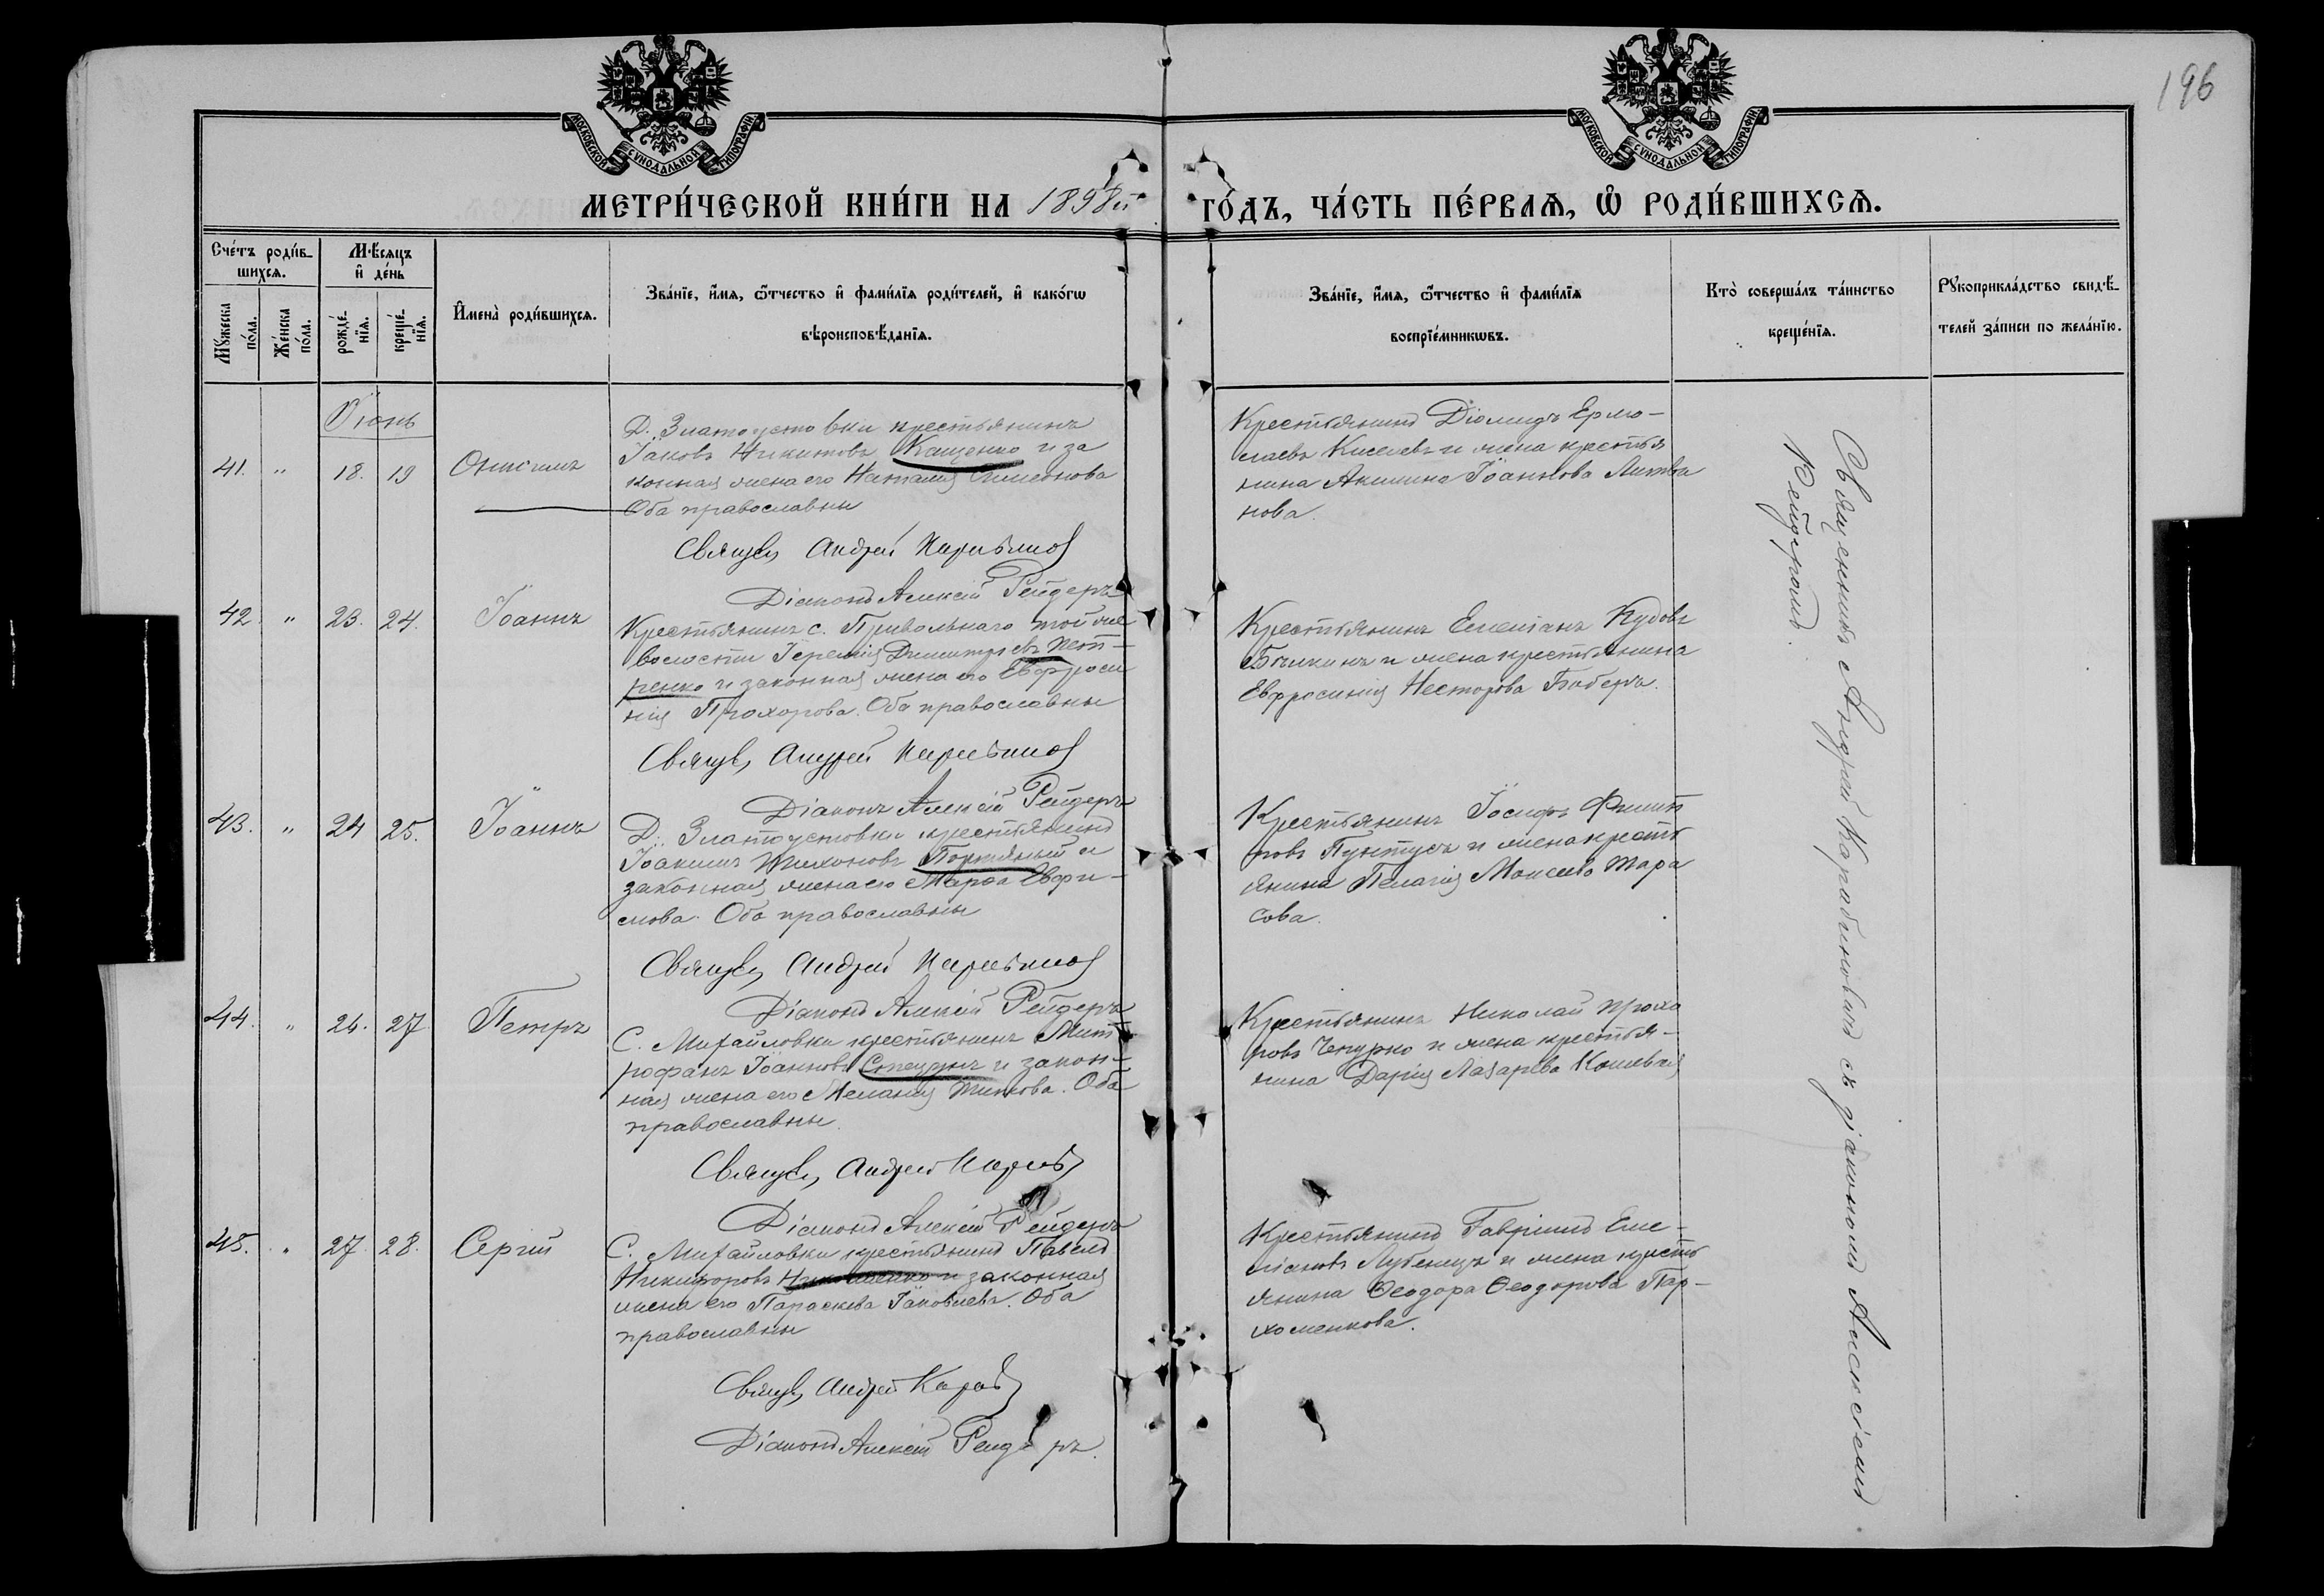 196
МОСКОВСКОЙ СѴНОДАЛЬНОЙ ТИПОГРАФІИ
МОСКОВСКОЙ СѴНОДАЛЬНОЙ ТИПОГРАФІИ
МЕТРИ́ЧЕСКОЙ КНИ́ГИ НА 1898й ГО́ДЪ, ЧА́СТЬ ПЕ́РВАѦ, Ѡ РОДИ́ВШИХСѦ.
Сче́тъ роди́в-
шихсѧ.
Мꙋ́жеска
по́ла.
Же́нска
по́ла.
Мѣ́сѧцъ
и҆ де́нь
рожде́-
нїѧ.
креще́-
нїѧ.
И҆мена̀ роди́вшихсѧ.
Зва́нїе, и҆́мѧ, ѻ҆́тчество и҆ фами́лїѧ роди́телей, и҆ како́гѡ
вѣроисповѣ́данїѧ.
Зва́нїе, и҆́мѧ, ѻ҆́тчество и҆ фами́лїѧ
воспрїе́мникѡвъ.
Кто̀ соверша́лъ та́инство
креще́нїѧ.
Рꙋкоприкла́дство свидѣ́-
телей за́писи по жела́нїю.
Іюнь
41. " 18. 19 Онисимъ
Д. Златоустовки крестьянинъ
Іаковъ Никитовъ Кащенко и за
конная жена его Наталія Симеонова
Оба православны
Священ Андрей Карабинов
Діаконъ Алексій Рейдеръ
Крестьянинъ Діомидъ Ермо-
лаевъ Киселевъ и жена крестья
нина Акилина Іоаннова Литви
нова.
42 " 23. 24. Іоаннъ
Крестьянинъ с. Привольнаго той же
волости Іеремія Димитріевъ Пет-
ренко и законная жена его Евфроси
нія Прохорова. Оба православны
Священ Андрей Карабинов
Діаконъ Алексій Рейдеръ
Крестьянинъ Емеліанъ
и жена крестьянина
Евфросинія Несторова
43. " 24 25. Іоаннъ
Д. Златоустовки крестьянинъ
Іоакимъ Тихоновъ Портяный и
законная жена его Марѳа Евфи-
мова. Оба православны
Священ Андрей Карабинов
Діаконъ Алексій Рейдеръ
Крестьянинъ Іосифъ Филип
повъ Пунтусъ и жена кресть
янина Пелагія Моисеева Тара
сова.
44. " 26. 27 Петръ
С. Михайловки крестьянинъ Мит
рофанъ Іоанновъ и закон-
ная жена его Меланія Титова. Оба
православны.
Священ Андрей Караб
Діаконъ Алексій Рейдеръ
Крестьянинъ Николай Прохо
ровъ Чепурко и жена крестья-
нина Дарія Лазарева Кошевая
45. " 27. 28. Сергій
С. Михайловки крестьянинъ Павелъ
Никифоровъ и законная
жена его Параскева Іаковлева. Оба
православны
Священ Андрей Караб
Діаконъ Алексій Рейдеръ.
Крестьянинъ Гавріилъ Еме-
ліановъ Лубенецъ и жена кресть
янина Ѳеодора Ѳеодорова Пар-
хоменкова.
Священникъ Андрей Карабиновъ съ діакономъ Алексіемъ
Рейдеромъ.